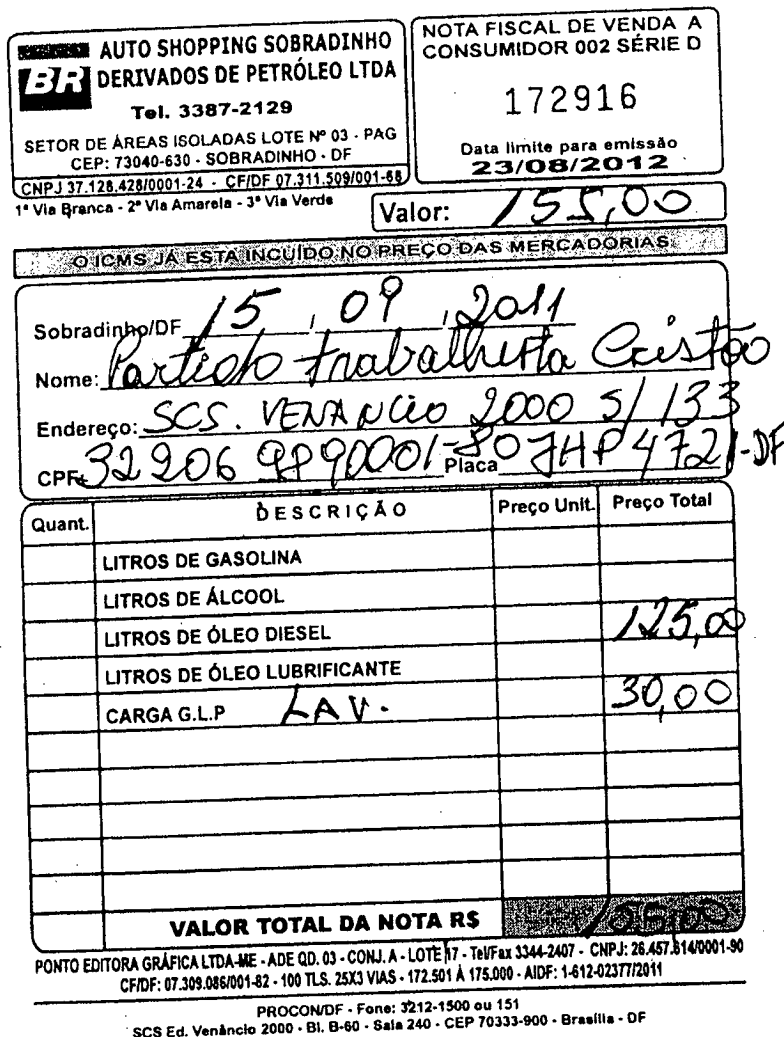 BR AUTO SHOPPING SOBRADINHO
DERIVADOS DE PETRÓLEO LTDA
Tel. 3387-2129
SETOR DE ÁREAS ISOLADAS LOTE Nº 03 - PAG
CEP: 73040-630 - SOBRADINHO - DF
CNPJ 37.128.428/0001-24 - CF/DF 07.311.509/001-68
1ª Via Branca - 2ª Via Amarela - 3ª Via Verde
NOTA FISCAL DE VENDA A
CONSUMIDOR 002 SÉRIE D
172916
Data limite para emissão
23/08/2012
Valor: 155,00
O ICMS JÁ ESTA INCUÍDO NO PREÇO DAS MERCADORIAS
Sobradinho/DF 15, 09, 2011
Nome: Partido trabalhista Cristão
Endereço: SCS. VENANCIO 2000 S/133
CPF: 32 206 989 0001-80 Placa JHP 4721-DF
Quant. DESCRIÇÃO Preço Unit. Preço Total
LITROS DE GASOLINA
LITROS DE ÁLCOOL
LITROS DE ÓLEO DIESEL 125,00
LITROS DE ÓLEO LUBRIFICANTE
CARGA G.L.P LAV. 30,00
VALOR TOTAL DA NOTA R$
PONTO EDITORA GRÁFICA LTDA-ME - ADE QD. 03 - CONJ. A - LOTE 17 - Tel/Fax 3344-2407 - CNPJ: 26.457.614/0001-90
CF/DF: 07.309.086/001-82 - 100 TLS. 25X3 VIAS - 172.501 À 175.000 - AIDF: 1-612-02377/2011
PROCON/DF - Fone: 3212-1500 ou 151
SCS Ed. Venâncio 2000 - Bl. B-60 - Sala 240 - CEP 70333-900 - Brasília - DF